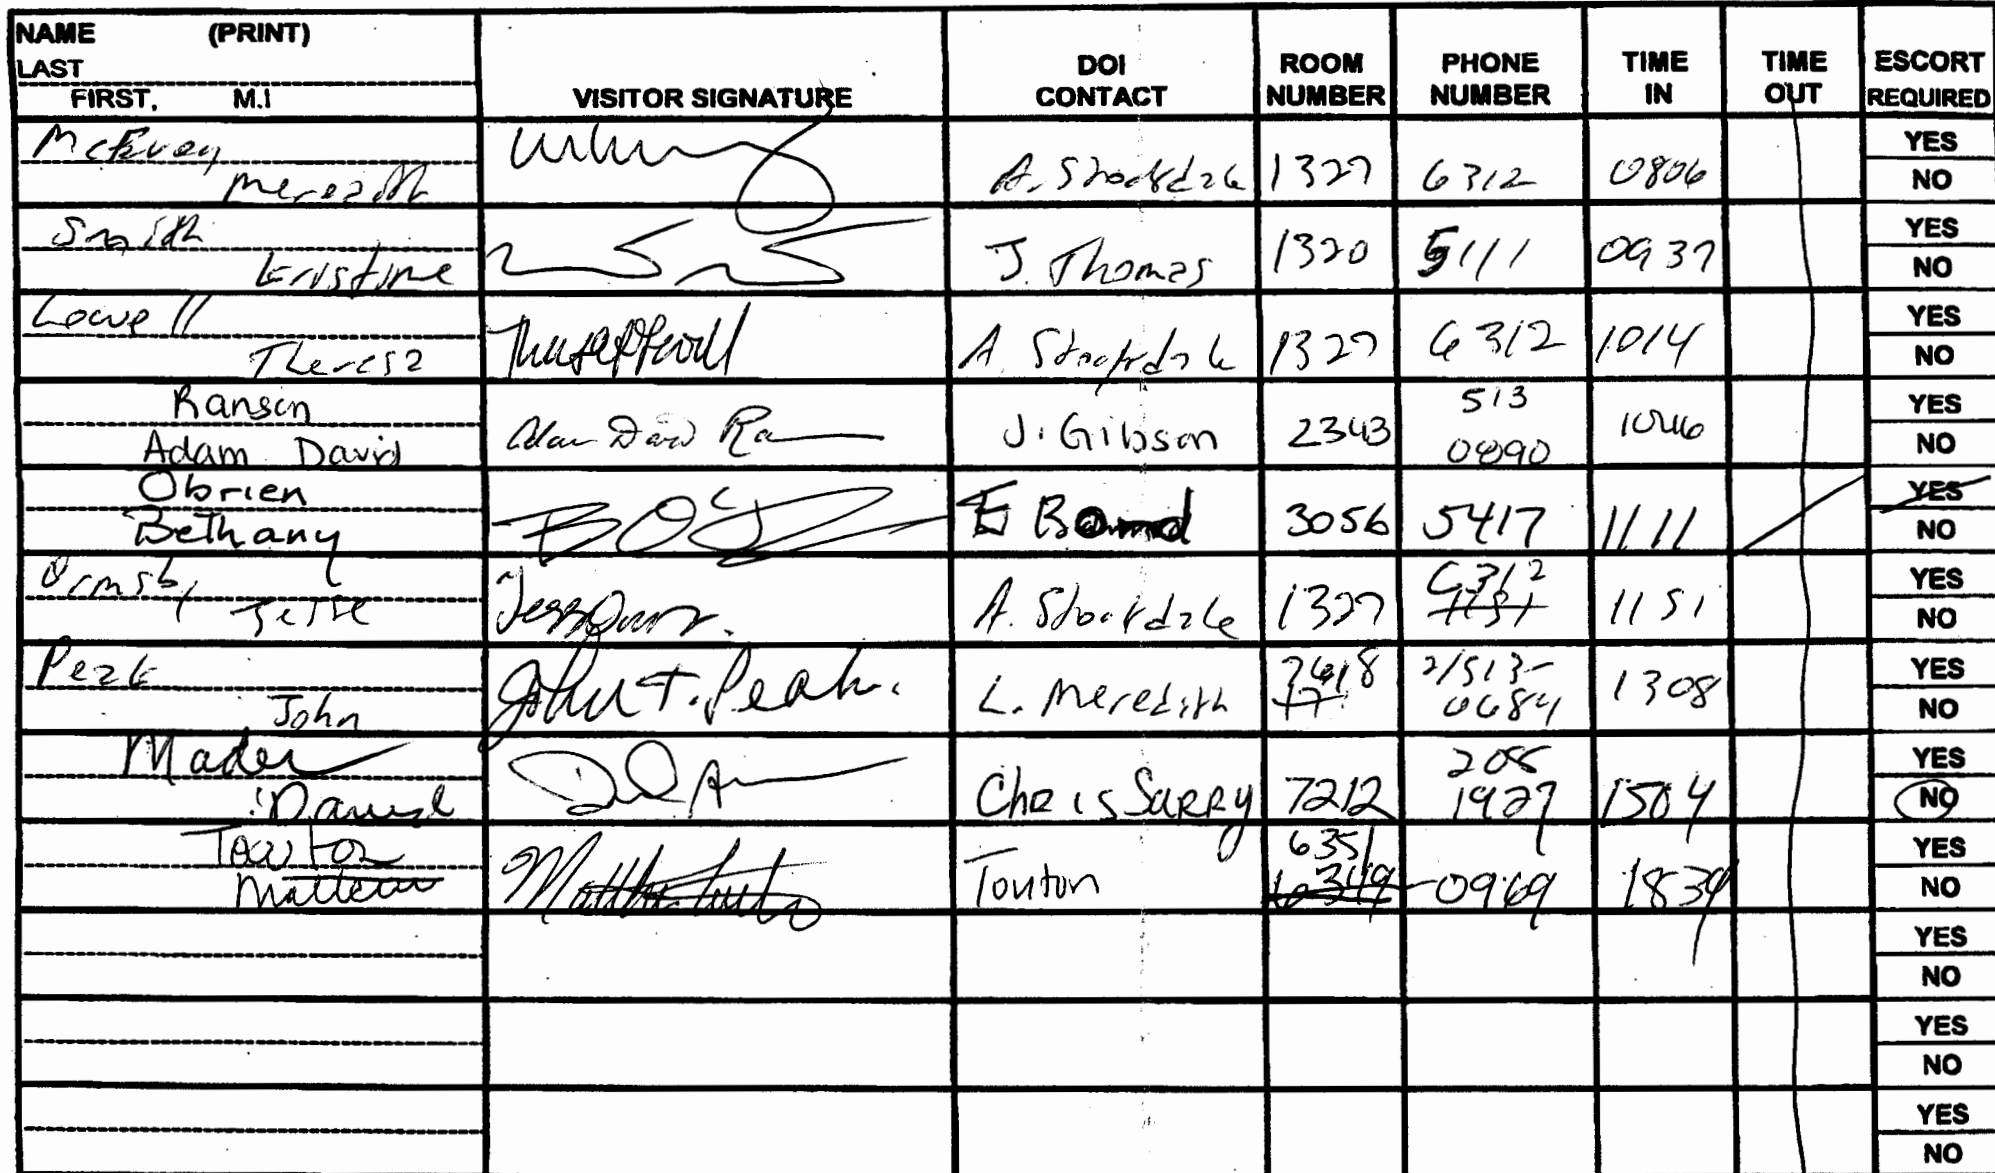 NAME (PRINT)
LAST
FIRST, M.I
VISITOR SIGNATURE
DOI CONTACT
ROOM NUMBER
PHONE NUMBER
TIME IN
TIME OUT
ESCORT REQUIRED
McEvoy
Meredith
A. Stockdale 1327 6312 0806
YES
NO
Smith
Kristine
J. Thomas 1320 5111 0937
YES
NO
Lowell
Theresa
A. Stockdale 1327 6312 1014
YES
NO
Ranson
Adam David
Adam David
J. Gibson 2343 513 1046
YES
NO
Obrien
Bethany
3056 5417 1111
YES
NO
Ormsby
Jesse
A. Stockdale 1327 6312 1151 1151
YES
NO
Peak
John
John T. Peak.
L. Meredith 2/513-
0684 1308
YES
NO
Mader
Daniel
Chris Sarry 7212 208
1927 1504
YES
NO
Touton
Matthew
Touton 6351
0969 1839
YES
NO
YES
NO
YES
NO
YES
NO